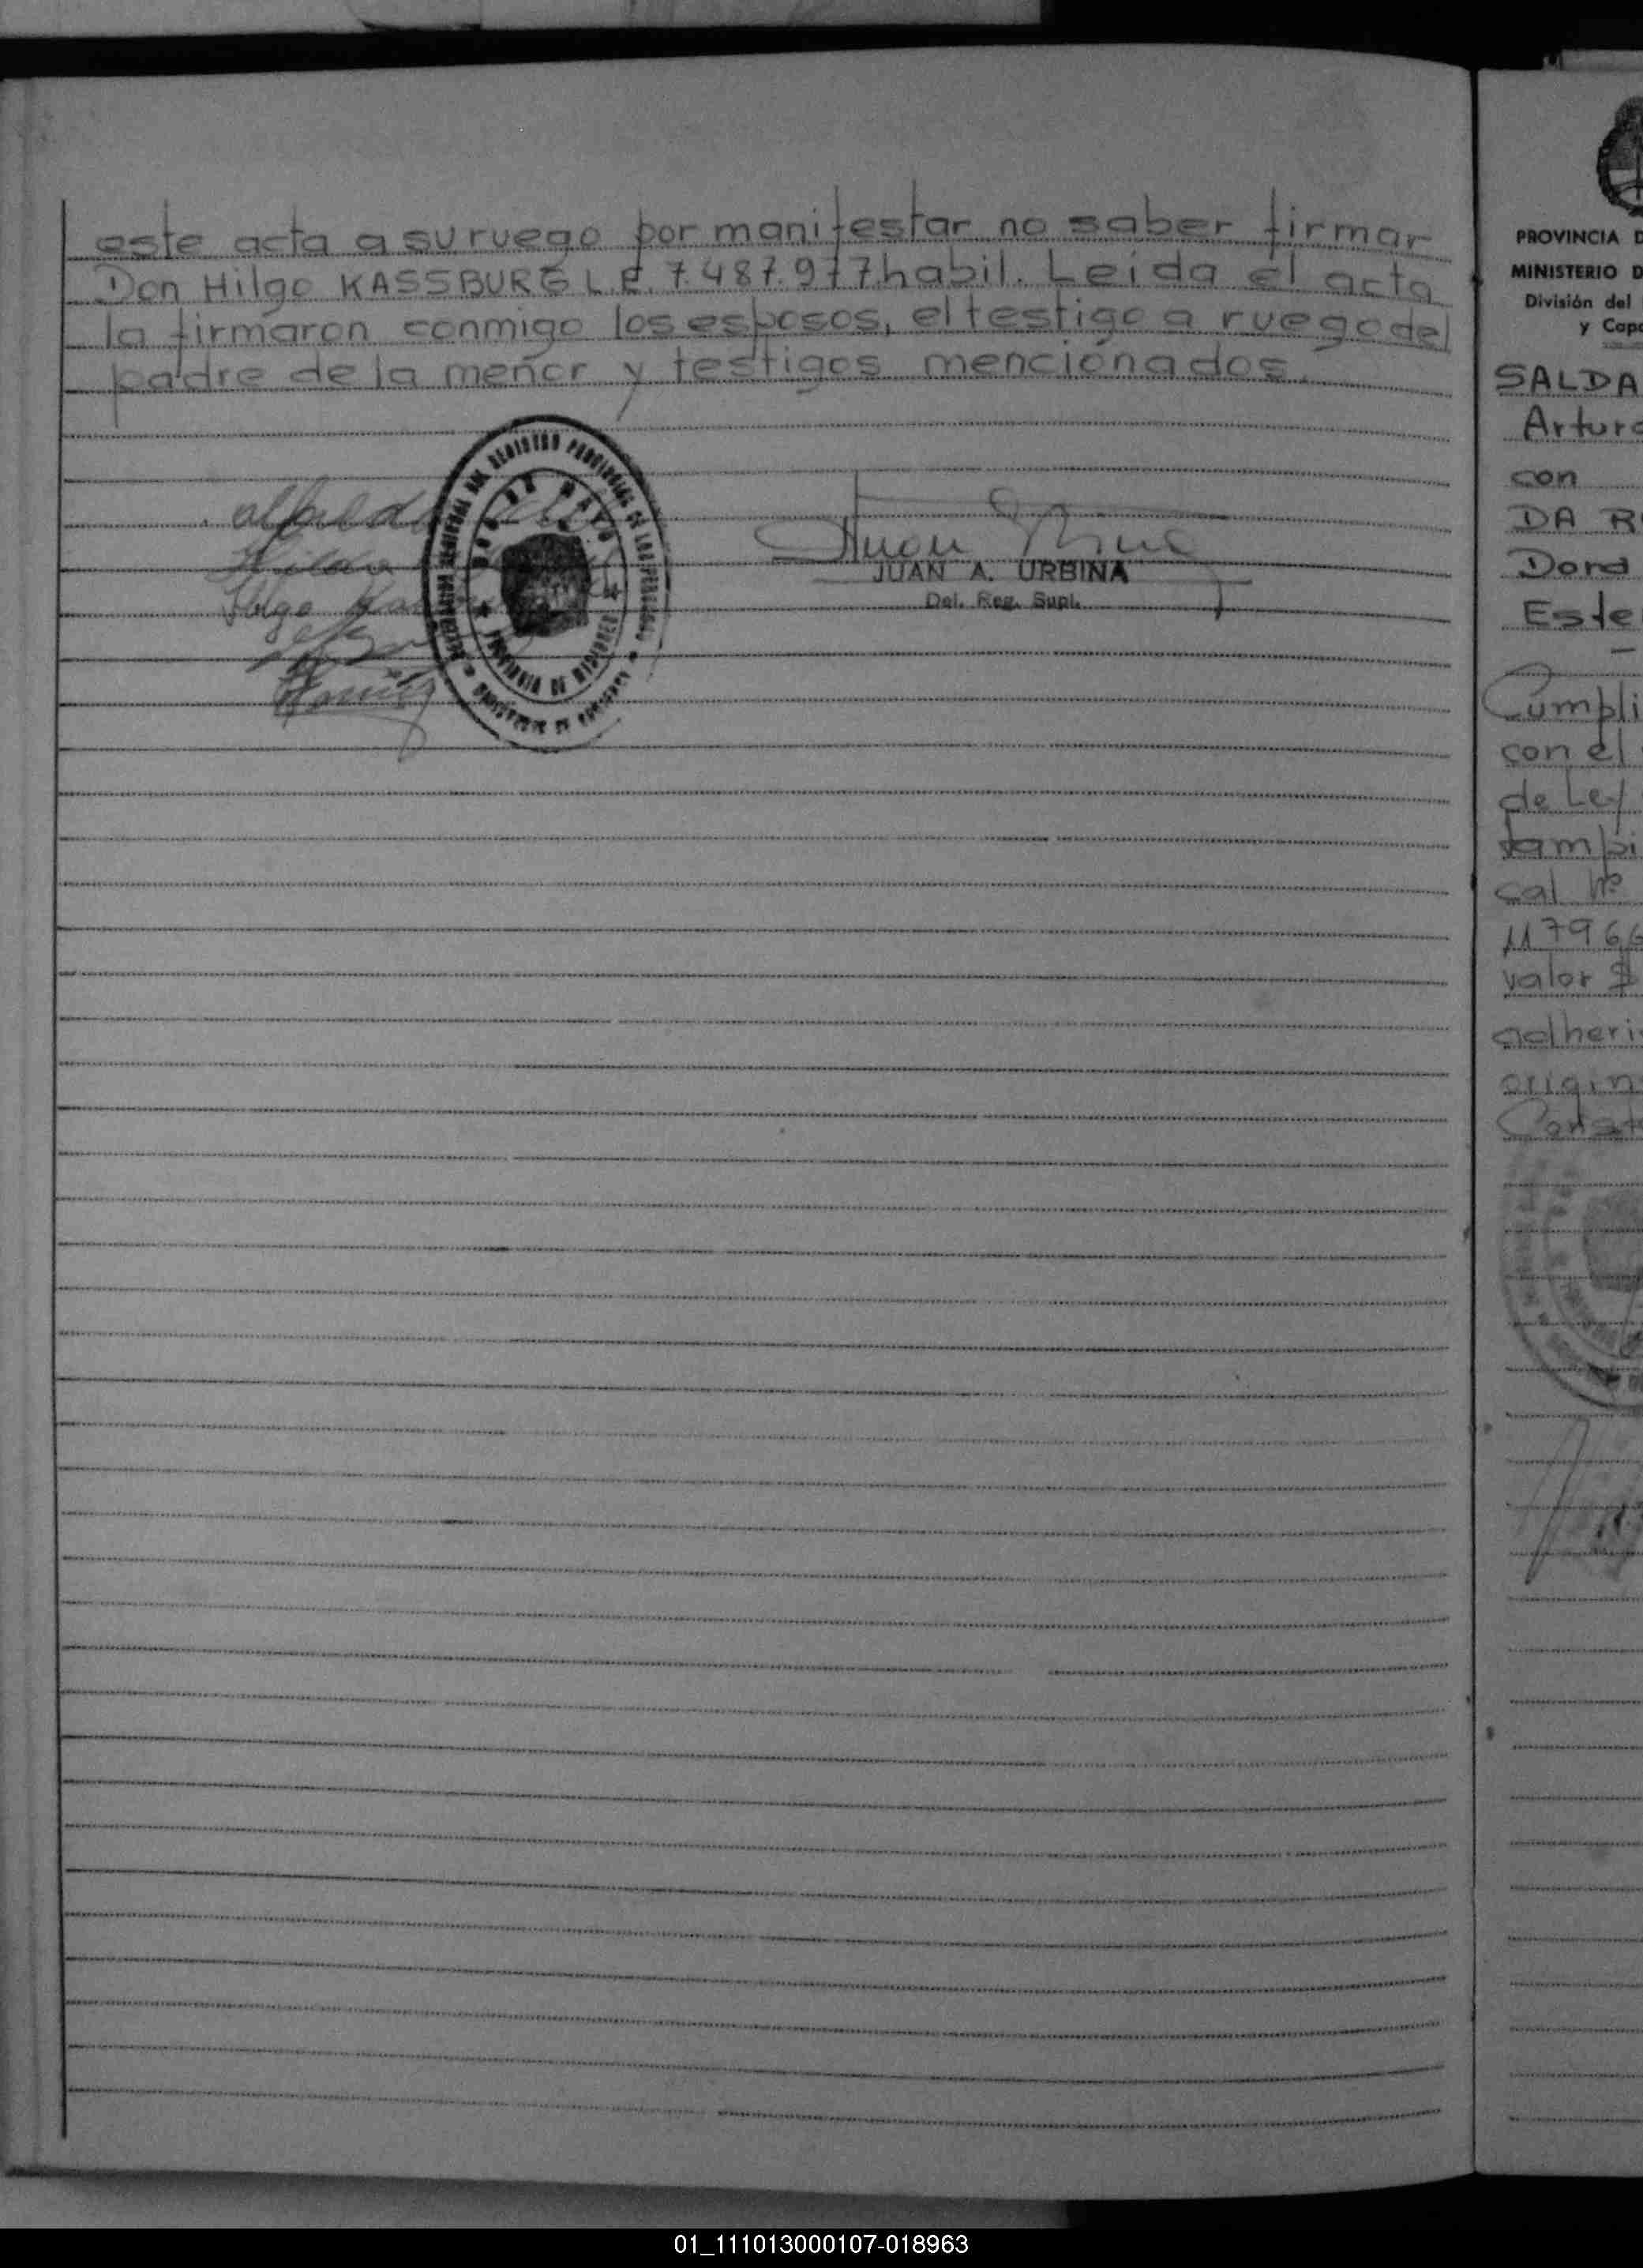 este acta a su ruego por manifestar no saber firmar
Don Hilgo KASSBURG L.E. 7.487.977 habil. Leída el acta
la firmaron conmigo los esposos, el testigo a ruego del
padre de la menor y testigos mencionados.
JUAN A. URBINA
Del. Reg. Supl.
PROVINCIA D
MINISTERIO D
División del
y Capa
SALDA
Arturo
con
DA R
Dora
Este
Cumpli
con el
de Ley
tampi
cal Nº
117966
valor $
adheri
origin
Const
01_111013000107-018963